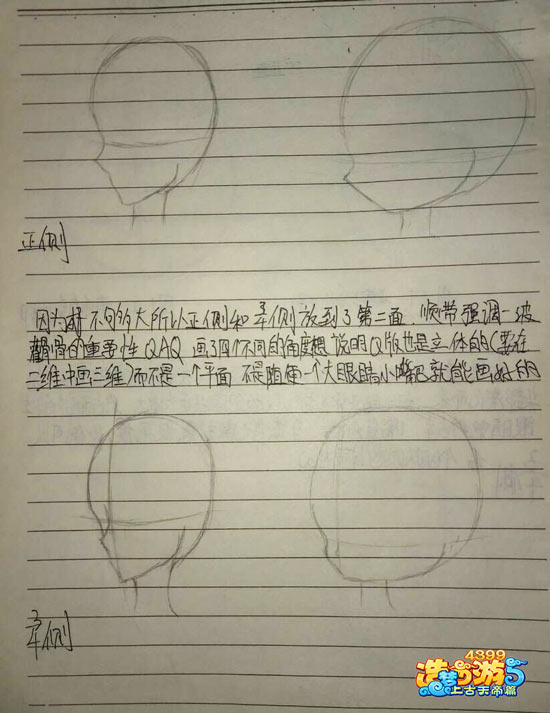 正侧
因为时不够大所以正侧和半侧放到了第二面 顺带强调一波
颧骨的重要性QAQ 画了四个不同的角度想说明Q版也是立体的(要在
二维中画三维)而不是一个平面 不是随便一个大眼睛小嘴巴就能画好的
半侧
4399
造梦西游5
上古天帝篇